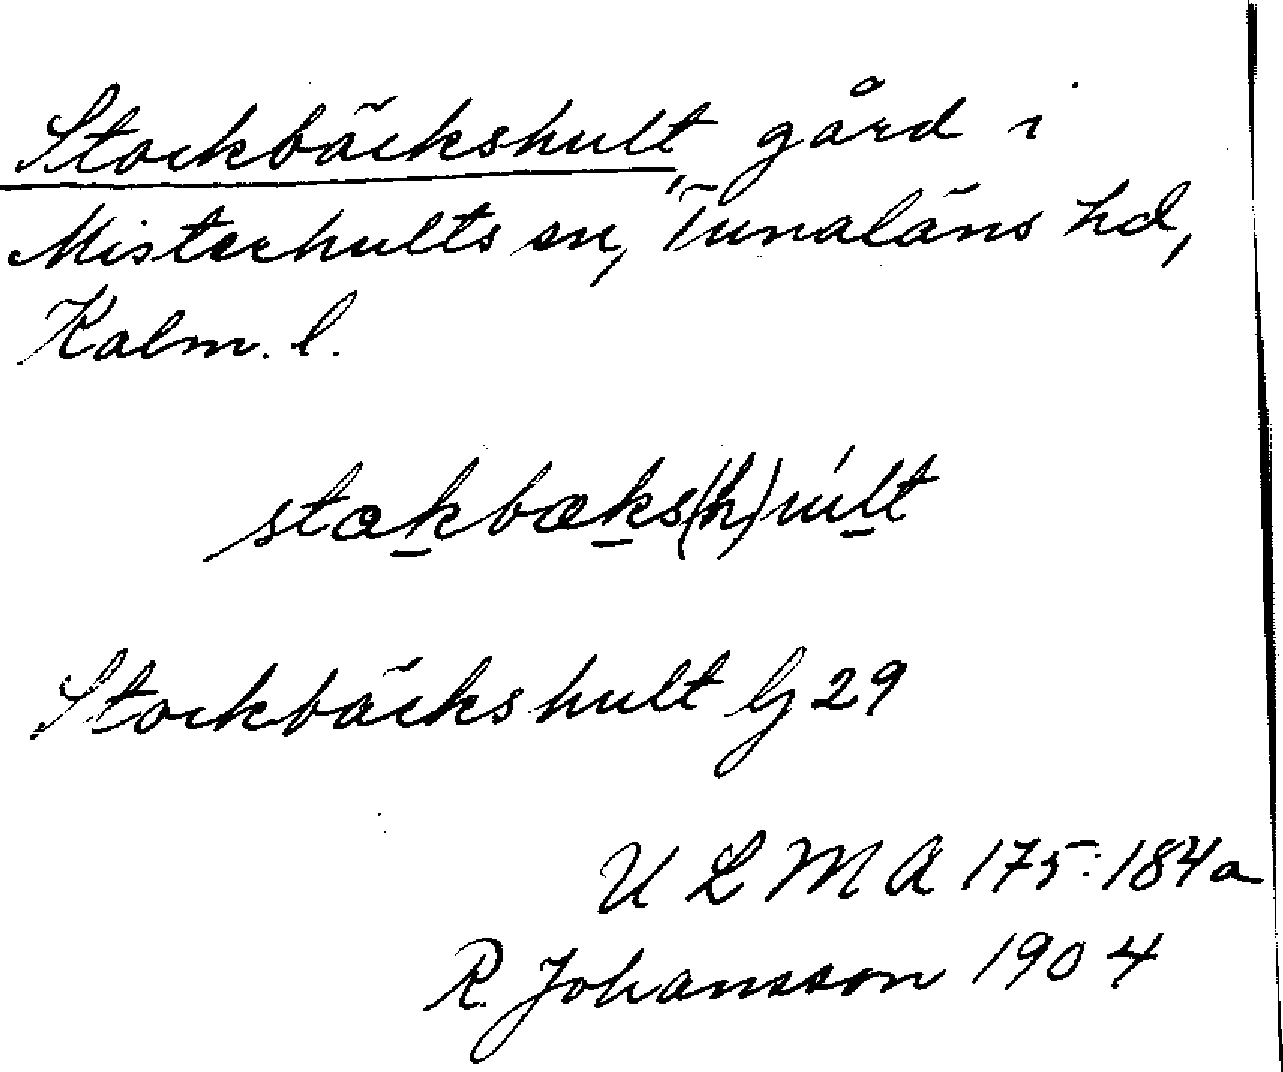 Stockbäckshult, gård i
Misterhults sn, Tunaläns hd,
Kalm. l.
stakbæks(h)últ
Stockbäckshult Gj 29
U L M A 175:184a
R. Johansson 1904